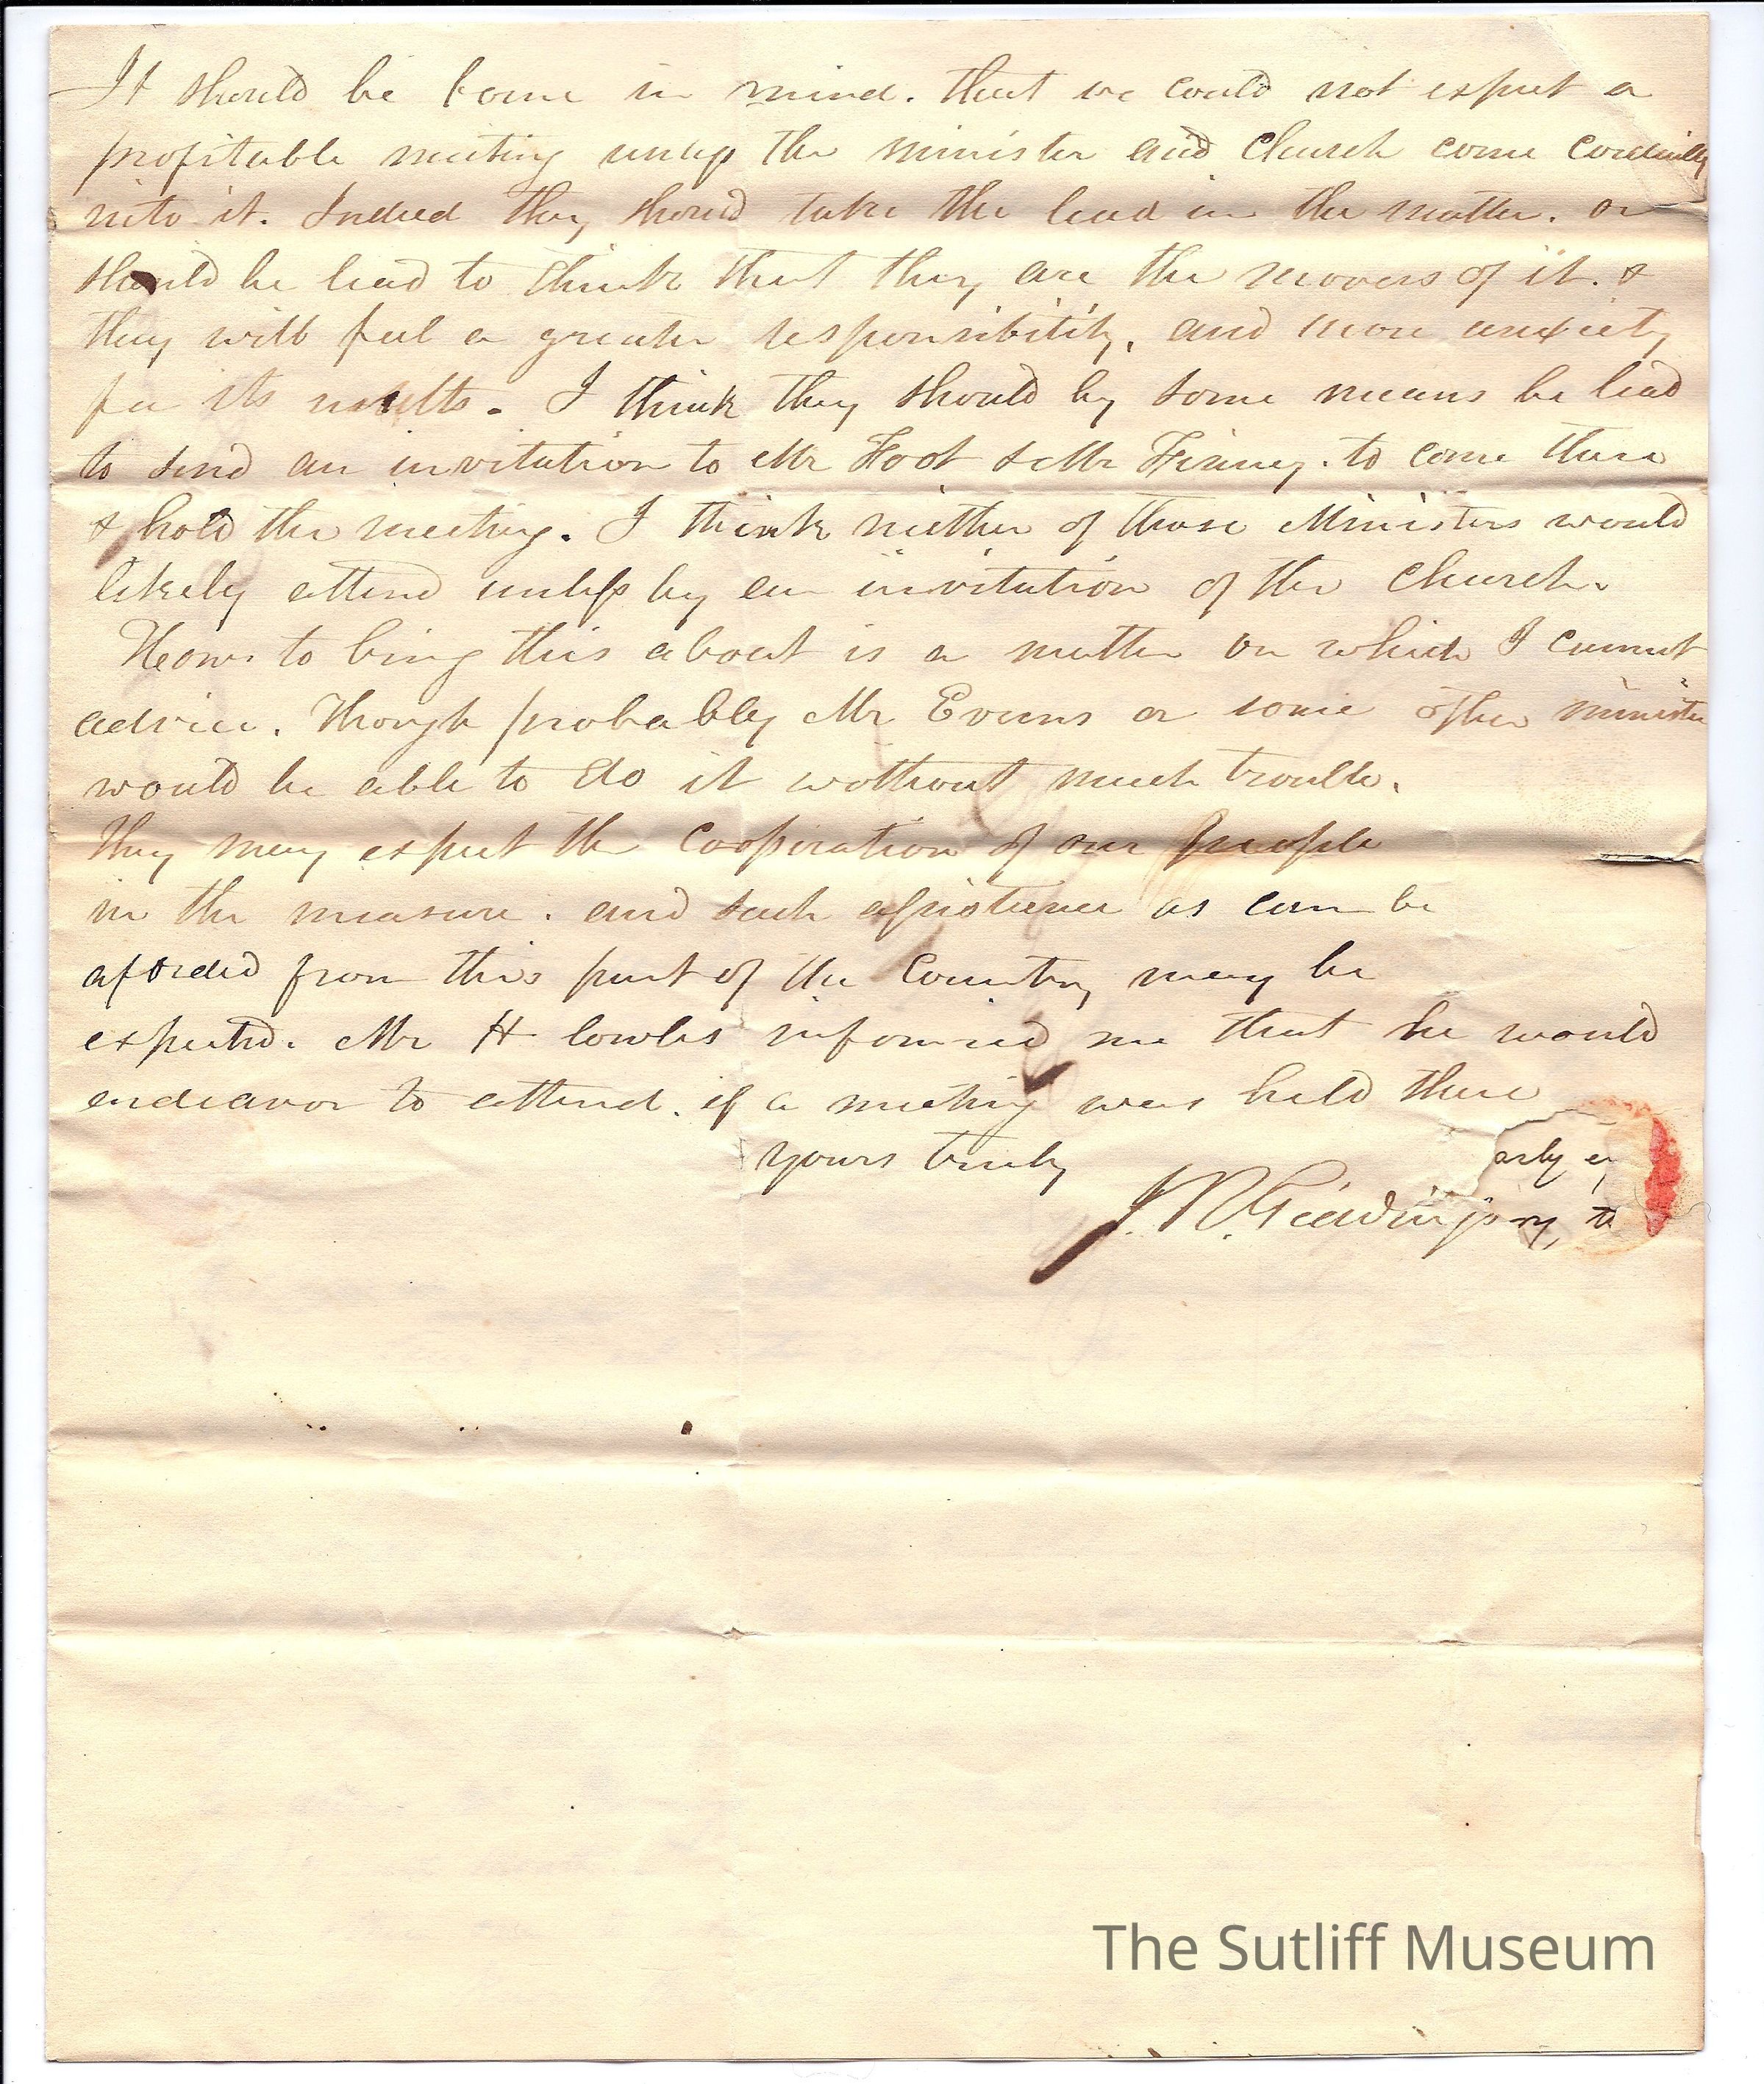 It should be borne in mind. that we could not expect a
profitable meeting unless the minister and Church come cordially
into it. Indeed they should take the lead in the matter. or
should be lead to think that they are the movers of it. &
they will feel a greater responsibility, and more anxiety
for its results. I think they should by some means be lead
to send an invitation to Mr Foot & Mr Finney. to come there
& hold the meeting. I think neither of those Ministers would
likely attend unless by an invitation of the Church.
How to bring this about is a matter on which I cannot
advice. Though probably Mr Evans or some other minister
would be able to do it without much trouble.
They may expect the Cooperation of our people
in the measure. and such assistance as can be
aforded from this part of the Country may be
expected. Mr H Cowles informed me that he would
endeavor to attend. if a meeting was held there
yours truly
arly
J. R. Giddings
The Sutliff Museum